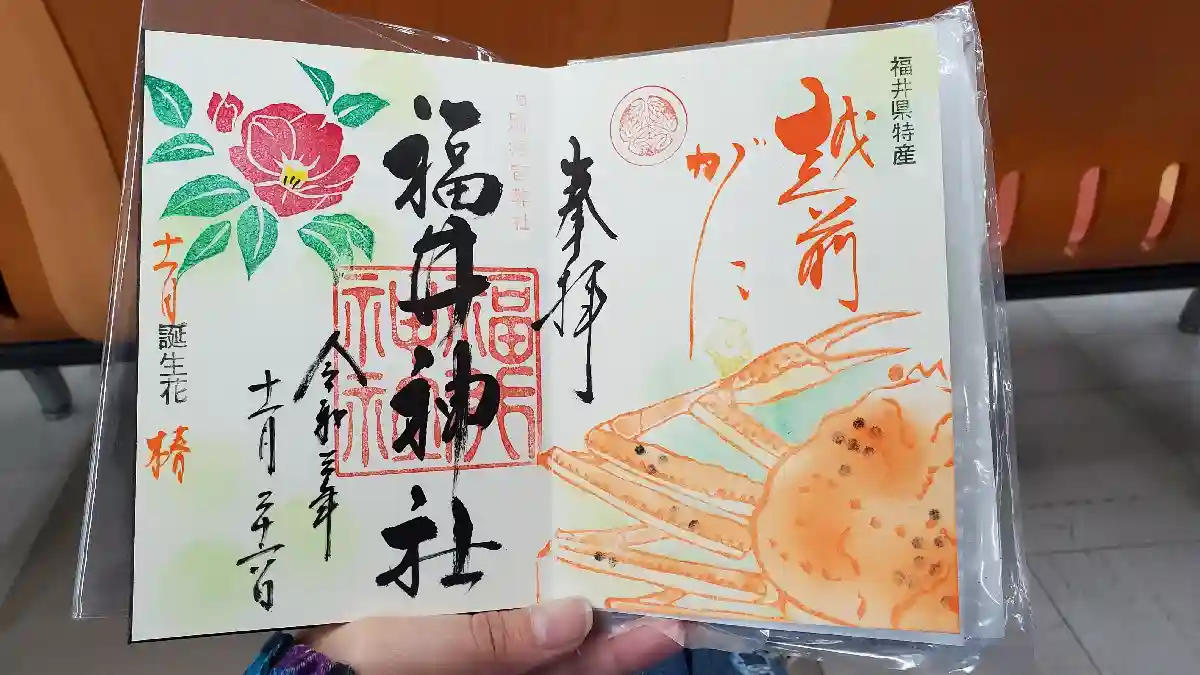 福井県特産
越前
がに
奉拝
旧別格官幣社
福井神社
福井
神社
令和三年
十一月二十六日
十一月
誕生花
椿